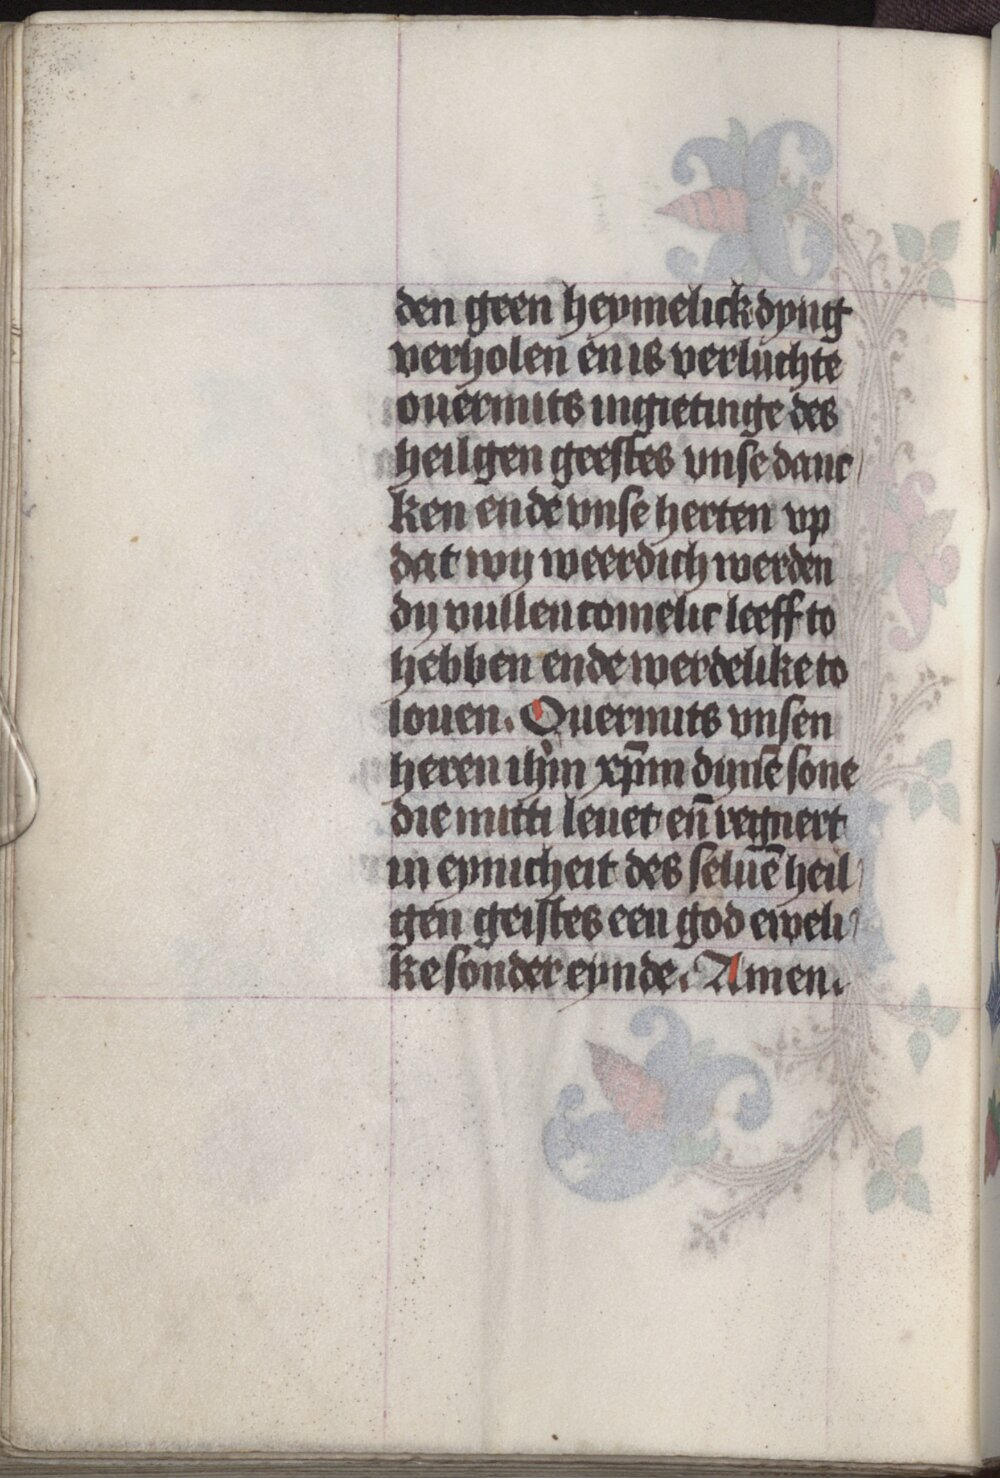 den geen heymelick dyng
verholen en is verluchte
ouermits ingietinge des
heiligen geestes vnse danc
ken ende vnse herten vp
dat wy weerdich werden
dy vullencomelic leeff to
hebben ende werdelike to
louen. Ouermits vnsen
heren ihm xpm dynē sone
die mitti leuet en̄ regnert
in eynicheit des seluē heil
gen geistes een god eweli
ke sonder eynde. Amen.